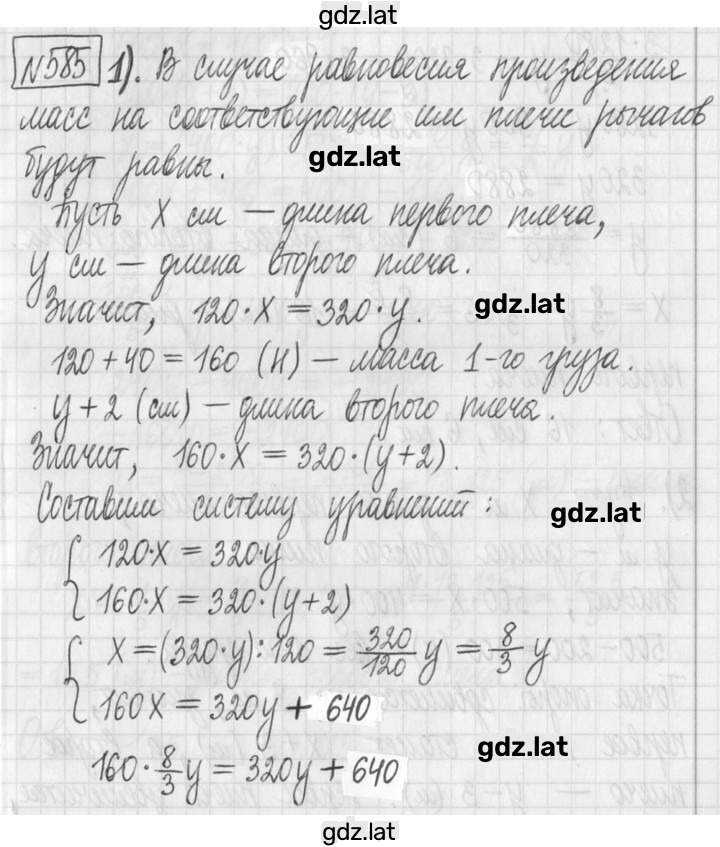 gdz.lat
№585 1). В случае равновесия произведения
масс на соответствующие им плечи рычагов
будут равны.
gdz.lat
Пусть X см — длина первого плеча,
y см — длина второго плеча.
Значит, 120·X = 320·y.
gdz.lat
120 + 40 = 160 (Н) — масса 1-го груза.
y + 2 (см) — длина второго плеча.
Значит, 160·X = 320·(y+2).
Составим систему уравнений:
gdz.lat
{ 120·X = 320·y
160·X = 320·(y+2)
{ X = (320·y):120 = 320/120 y = 8/3 y
160X = 320y + 640
gdz.lat
160·8/3 y = 320y + 640
gdz.lat